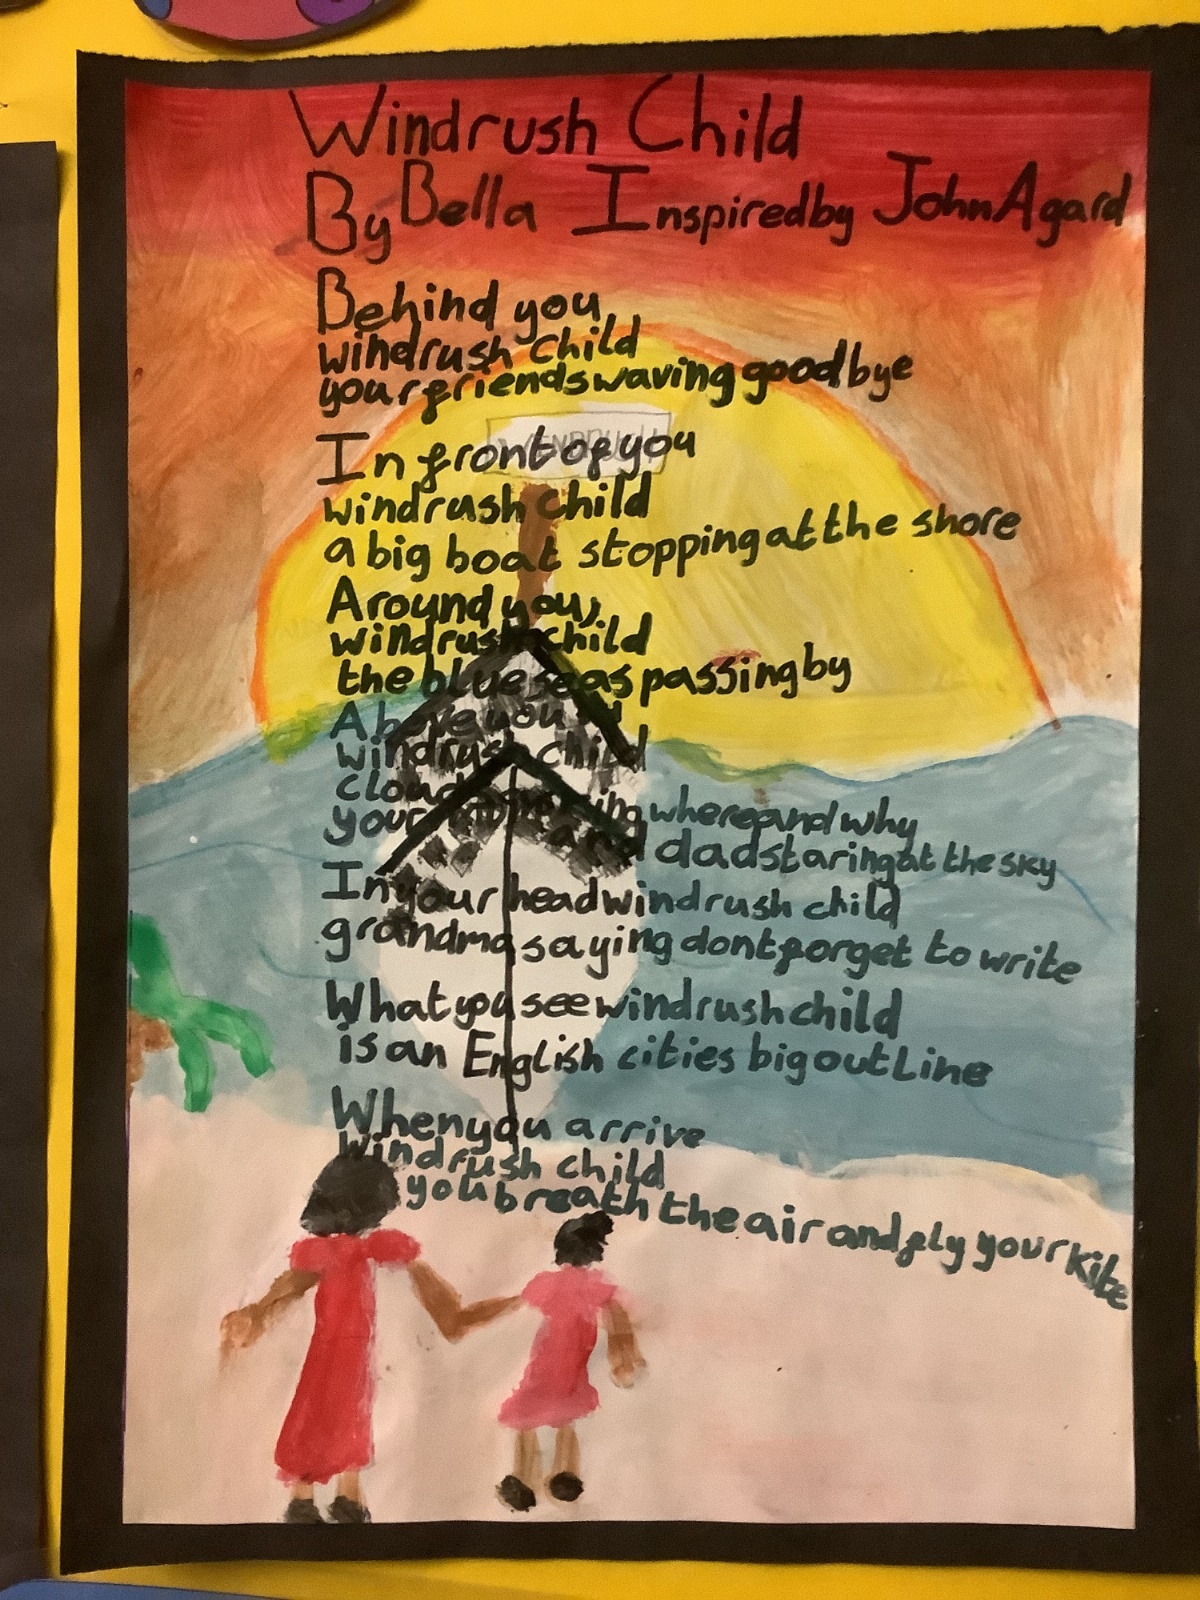 Windrush Child
By Bella Inspired by John Agard
Behind you
windrush child
your friends waving good bye
In front of you
WINDRUSH
windrush child
a big boat stopping at the shore
Around you,
windrush child
the blue seas passing by
Above you
windrush child
where and why
your and dad staring at the sky
In your head windrush child
grandma saying dont forget to write
What you see windrush child
is an English cities big outLine
When you arrive
windrush child
you breath the air and fly your kite